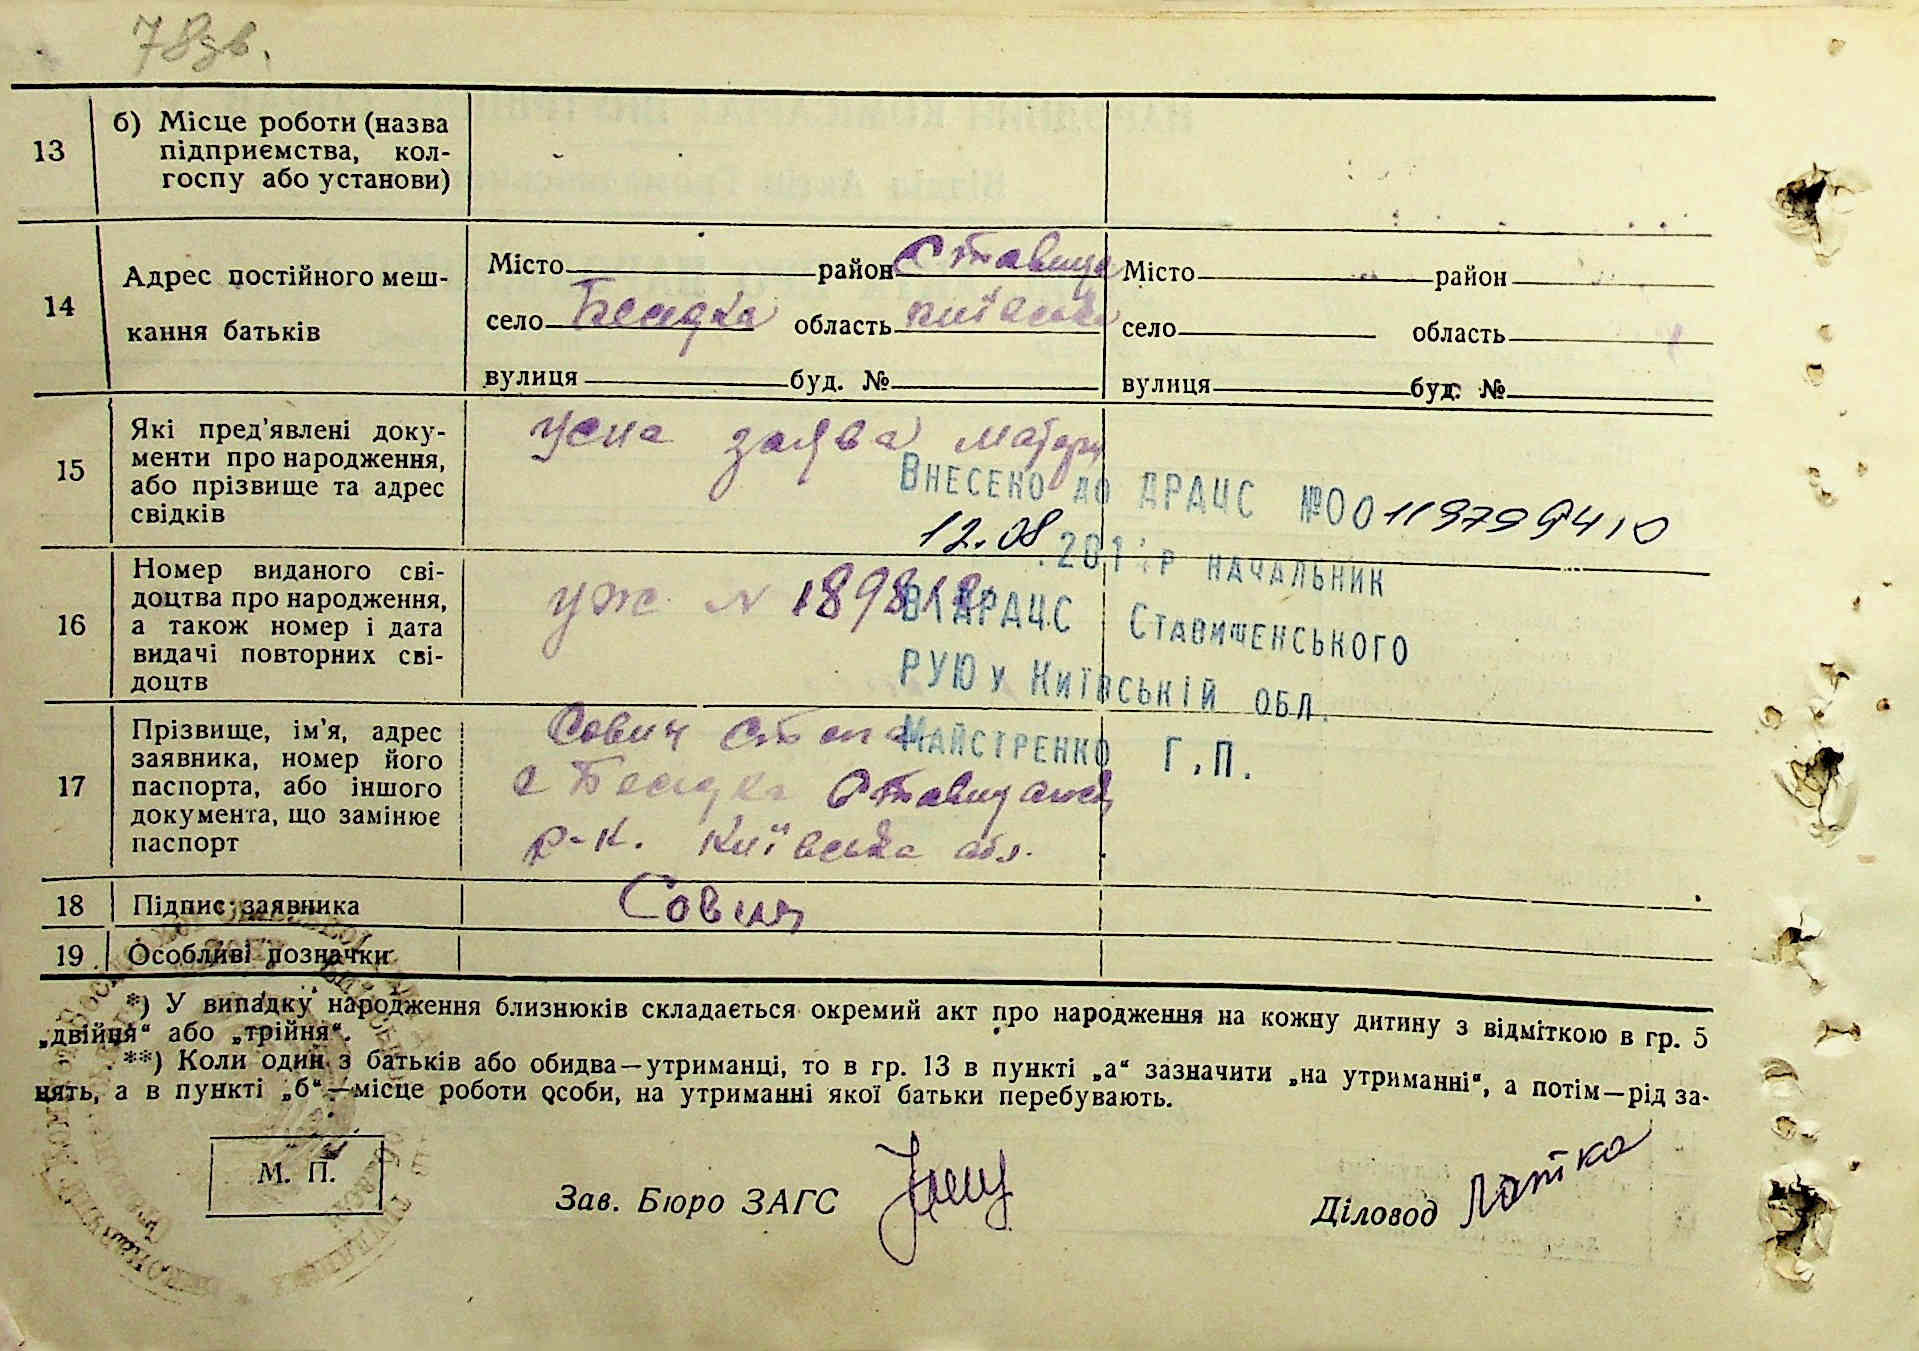 78зв.
13 б) Місце роботи (назва
підприємства, кол-
госпу або установи)
14 Адрес постійного меш-
кання батьків
Місто район Ставища Місто район
село Бесідка область Київська село область
вулиця буд. № вулиця буд. №
15 Які пред'явлені доку-
менти про народження,
або прізвище та адрес
свідків
усна заява матери
Внесено до ДРАЦС №00119799410
12.08 .201 р начальник
В ДРАЦС Ставищенського
РУЮ у Київській обл.
Майстренко Г.П.
16 Номер виданого сві-
доцтва про народження,
а також номер і дата
видачі повторних сві-
доцтв
УЖ N 189818
17 Прізвище, ім'я, адрес
заявника, номер його
паспорта, або іншого
документа, що замінює
паспорт
Сович
с Бесідка Ставищанск
р-к. Київська обл.
18 Підпис заявника Сович
19 Особливі позначки
*) У випадку народження близнюків складається окремий акт про народження на кожну дитину з відміткою в гр. 5
„двійня“ або „трійня“.
**) Коли один з батьків або обидва—утриманці, то в гр. 13 в пункті „а“ зазначити „на утриманні“, а потім—рід за-
нять, а в пункті „б“—місце роботи особи, на утриманні якої батьки перебувають.
М. П.
Зав. Бюро ЗАГС
Діловод Латка